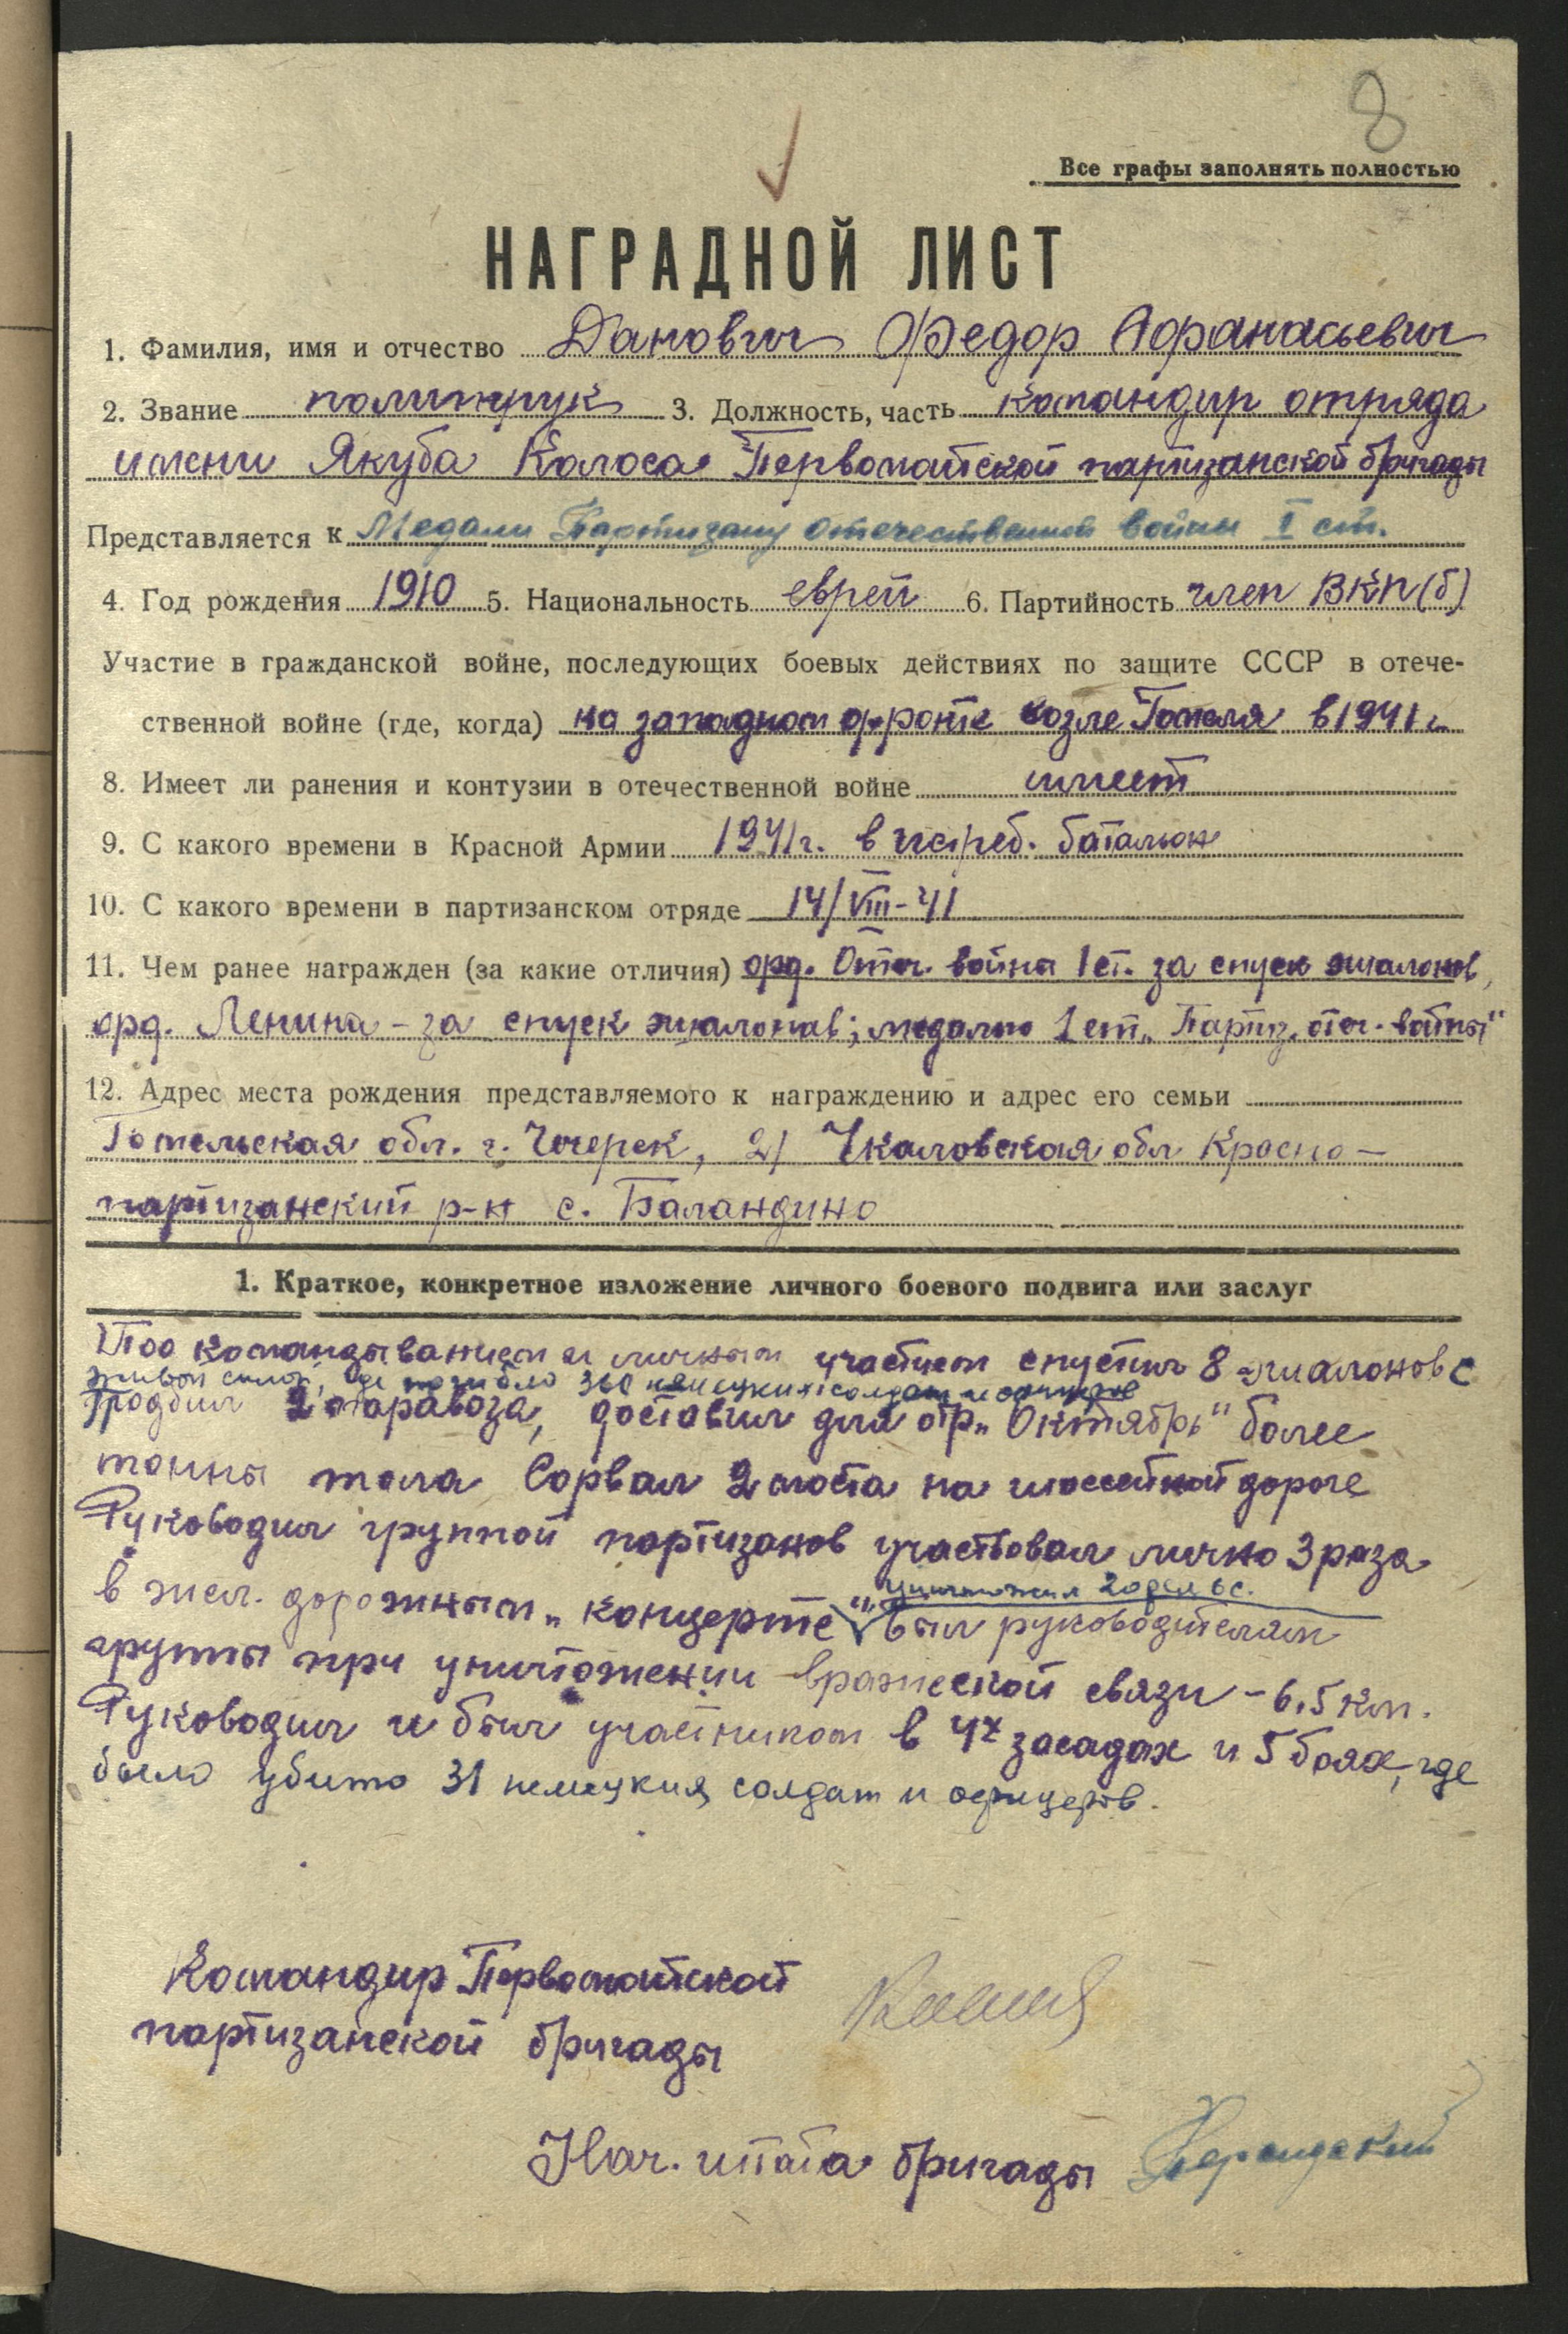 8
Все графы заполнять полностью
НАГРАДНОЙ ЛИСТ
1. Фамилия, имя и отчество Данович Федор Афранасьевич
2. Звание политрук 3. Должность, часть командир отряда
имени Якуба Коласа Первомайской партизанской бригады
Представляется к Медали Партизану Отечественной войны I ст.
4. Год рождения 1910 5. Национальность еврей 6. Партийность член ВКП(б)
Участие в гражданской войне, последующих боевых действиях по защите СССР в отече-
ственной войне (где, когда) на западном фронте возле Гомеля в 1941 г.
8. Имеет ли ранения и контузии в отечественной войне имеет
9. С какого времени в Красной Армии 1941 г. в истреб. батальон
10. С какого времени в партизанском отряде 14/VIII-41
11. Чем ранее награжден (за какие отличия) орд. Отеч. война 1 ст. за спуск эшалонов,
орд. Ленина - за спуск эшалонав; медалью 1 ст. „Партиз. отеч. войны"
12. Адрес места рождения представляемого к награждению и адрес его семьи
Гомельская обл. г. Чечерск, 2) Чкаловская обл Красно-
партизанский р-н с. Баландино
1. Краткое, конкретное изложение личного боевого подвига или заслуг
Под командыванием и личным участием спустил 8 эшалонов с
живой силой, где погибло 360 немецких солдат и офицеров
Подбил 2 паравоза, доставил для отр. „Октябрь" более
тонны тола Сорвал 2 моста на шоссейной дороге
Руководил групой партизанов участвовал лично 3 раза
в жел. дорожным „концерте" уничтожил рельс.
Был руководителем
групы при уничтожении вражеской связи - 6,5 км.
Руководил и был участником в 4х засадах и 5 боях, где
было убито 31 немецких солдат и офицеров.
Командир Первомайской
партизанской бригады
Нач. штаба бригады